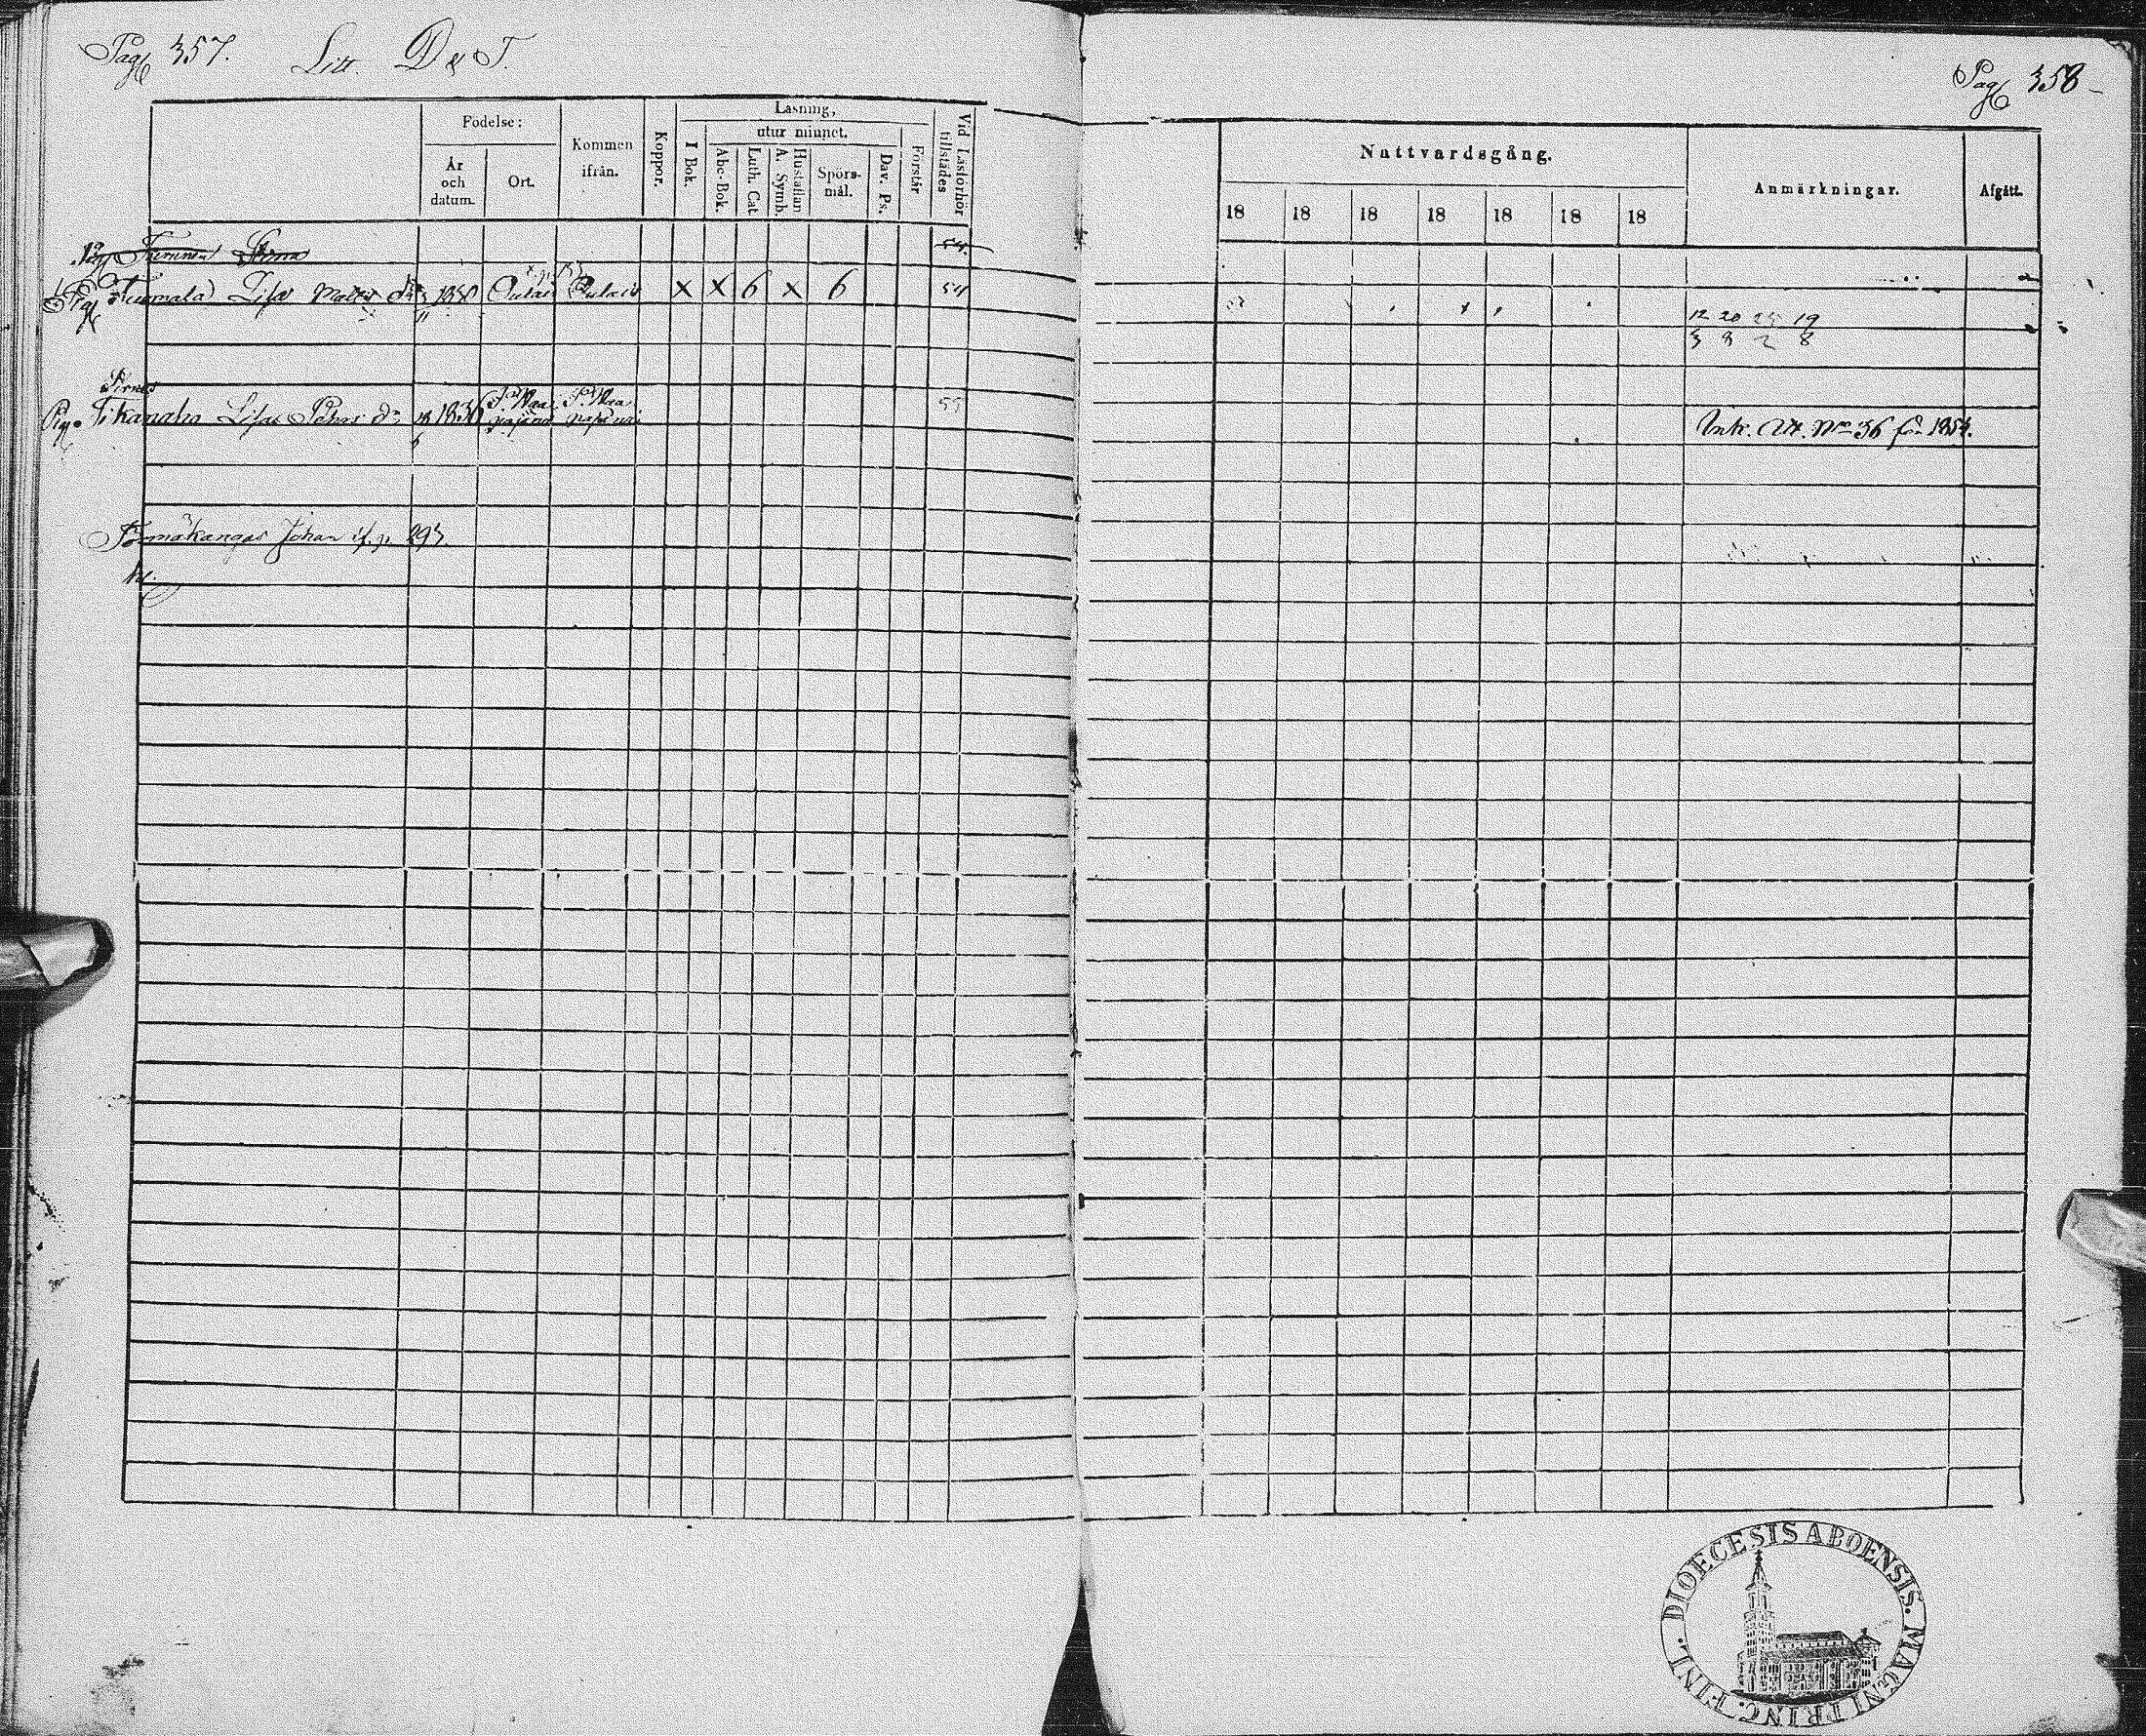 Pag 357. Litt. D & T.
Födelse:
År och datum.
Ort.
Kommen ifrån.
Koppor.
Läsning,
I Bok.
utur minnet.
Abc-Bok.
Luth. Cat.
Hustaflan A. Symb.
Spörs-mål.
Dav. Ps.
Förstår
Vid Läsförhör tillstädes
54.
Tuomala Lisa Matts dr 1830 Oulais Oulais x x 6 x 6 54
11
Pig. Tikanaho Lisa Pehrs dr 18 1836 55
6
Törmäkangas Johan if. p. 293.
Pag 358
Nattvardsgång.
18 18 18 18 18 18 18
Anmärkningar.
Afgått.
12 20 25 19
3 9 2 8
Intr. Att. No 36 för 1854.
DIOECESIS ABOENSIS. MAGNI PRINC. FINL.